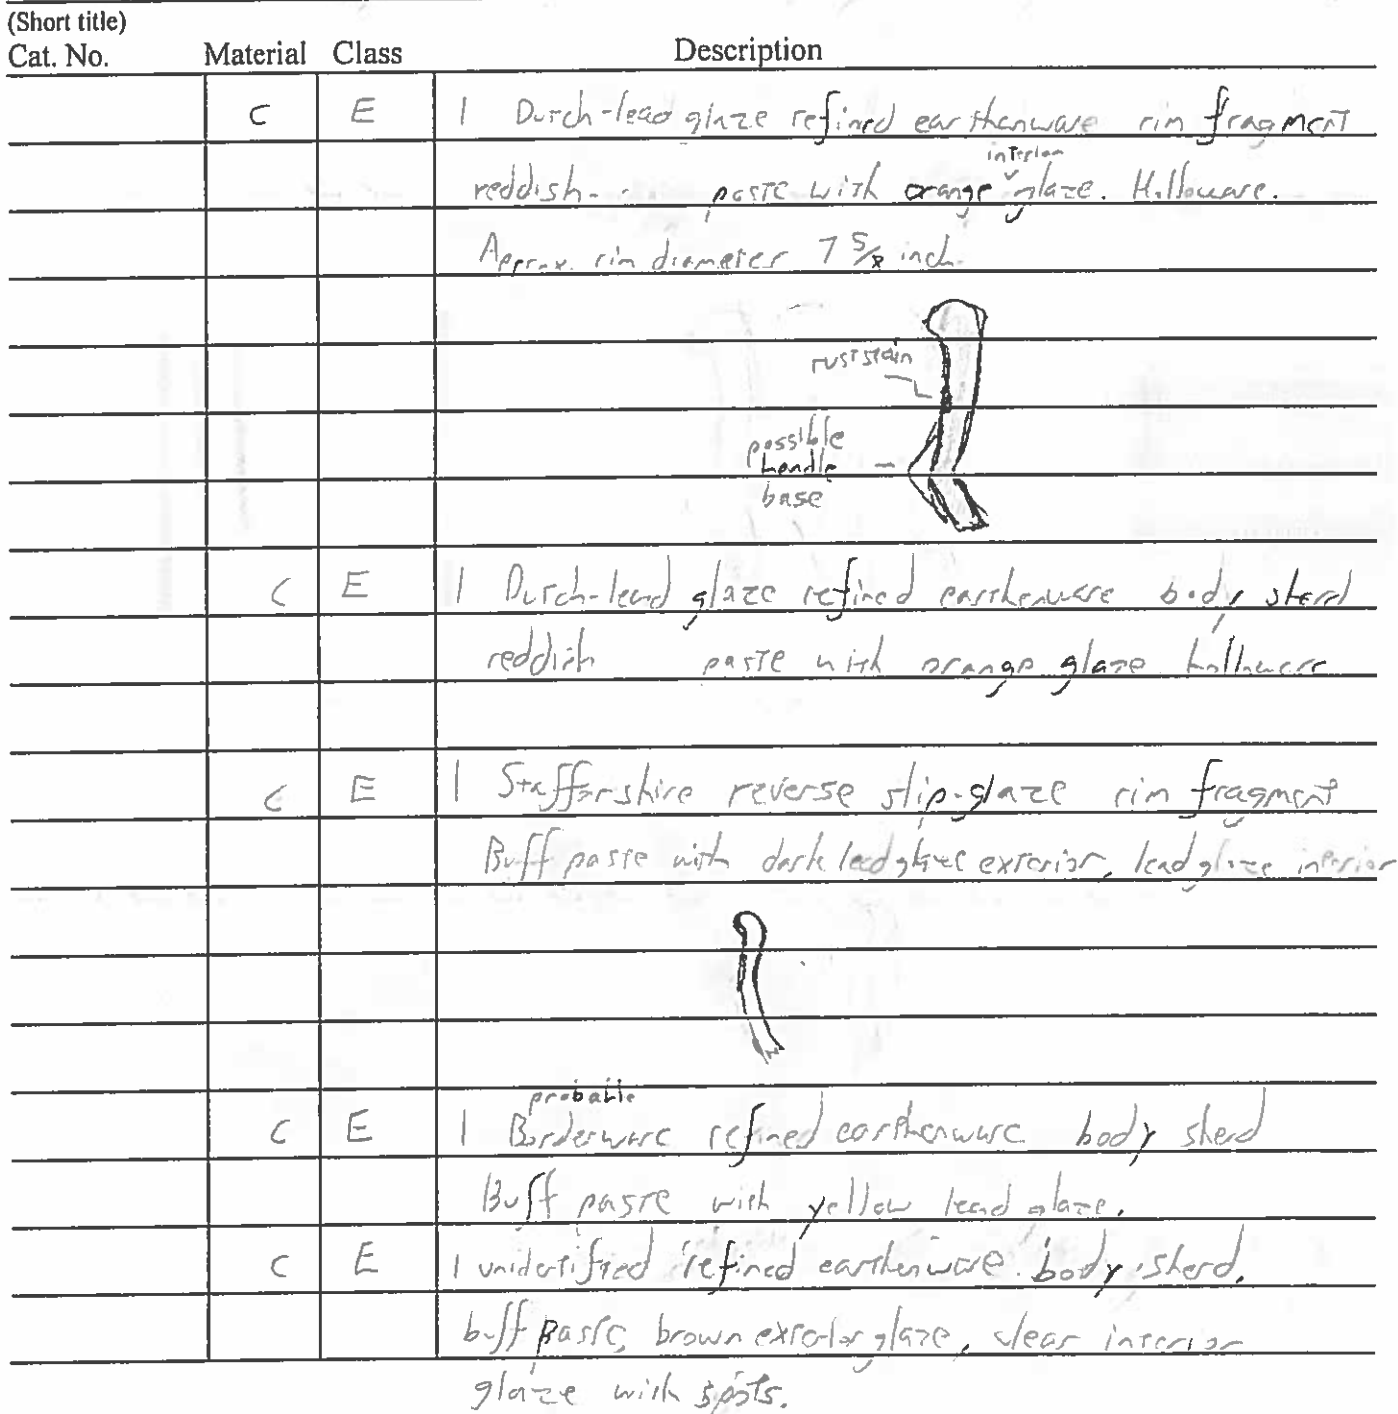 (Short title)
Cat. No. Material Class Description
C E 1 Dutch-lead glaze refined earthenware rim fragment
interior
reddish- paste with orange glaze. Holloware.
Approx. rim diameter 7 5/8 inch.
rust stain
possible
handle
base
C E 1 Dutch-lead glaze refined earthenware body sherd
reddish paste with orange glaze holloware
C E 1 Stafforshire reverse slip-glaze rim fragment
Buff paste with dark lead glaze exterior, lead glaze interior
probable
C E 1 Borderware refined earthenware body sherd
Buff paste with yellow lead glaze.
C E 1 unidentified refined earthenware body sherd,
buff paste, brown exterior glaze, clear interior
glaze with spots.